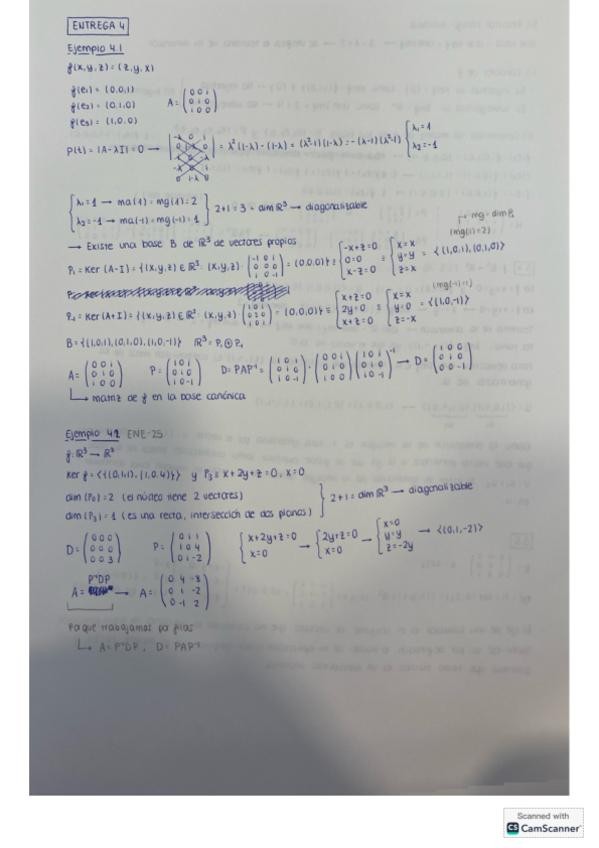 ENTREGA 4
Ejemplo 4.1
f(x,y,z) = (z,y,x)
f(e₁) = (0,0,1)
f(e₂) = (0,1,0) A = (0 0 1 / 0 1 0 / 1 0 0)
f(e₃) = (1,0,0)
P(t) = |A-λI| = 0 → |-λ 0 1 / 0 1-λ 0 / 1 0 -λ| = λ²(1-λ) - (1-λ) = (λ²-1)(1-λ) = -(λ-1)(λ²-1) { λ₁=1 / λ₂=-1
{ λ₁=1 → ma(1) = mg(1) = 2 / λ₂=-1 → ma(-1) = mg(-1) = 1 } 2+1 = 3 = dim ℝ³ → diagonalizable
→ Existe una base B de ℝ³ de vectores propios
mg = dim P₁
(mg(1)=2)
P₁ = Ker (A-I) = {(x,y,z) ∈ ℝ³: (x,y,z) · (-1 0 1 / 0 0 0 / 1 0 -1) = (0,0,0)} ≡ { -x+z=0 / 0=0 / x-z=0 ≡ { x=x / y=y / z=x = <(1,0,1),(0,1,0)>
(mg(-1)=1)
P₂ = Ker (A+I) = {(x,y,z) ∈ ℝ³: (x,y,z) · (1 0 1 / 0 2 0 / 1 0 1) = (0,0,0)} ≡ { x+z=0 / 2y=0 / x+z=0 ≡ { x=x / y=0 / z=-x = <(1,0,-1)>
B = {(1,0,1),(0,1,0),(1,0,-1)} ℝ³ = P₁⊕P₂
A = (0 0 1 / 0 1 0 / 1 0 0) P = (1 0 1 / 0 1 0 / 1 0 -1) D = PAP⁻¹ = (1 0 1 / 0 1 0 / 1 0 -1) · (0 0 1 / 0 1 0 / 1 0 0) (1 0 1 / 0 1 0 / 1 0 -1)⁻¹ → D = (1 0 0 / 0 1 0 / 0 0 -1)
↳ matriz de f en la base canónica
Ejemplo 4.2 ENE-25
f: ℝ³ → ℝ³
Ker f = <{(0,1,1),(1,0,4)}> y P₃ ≡ x+2y+z=0, x=0
dim (P₀) = 2 (el núcleo tiene 2 vectores)
dim (P₃) = 1 (es una recta, intersección de dos planos) } 2+1 = dim ℝ³ → diagonalizable
D = (0 0 0 / 0 0 0 / 0 0 3) P = (0 1 1 / 1 0 4 / 0 1 -2) { x+2y+z=0 / x=0 → { 2y+z=0 / x=0 → { x=0 / y=y / z=-2y → <(0,1,-2)>
P⁻¹DP
A = → A = (0 4 -8 / 0 1 -2 / 0 -1 2)
Pq que trabajamos por filas
↳ A = P⁻¹DP, D = PAP⁻¹
Scanned with
CS CamScanner